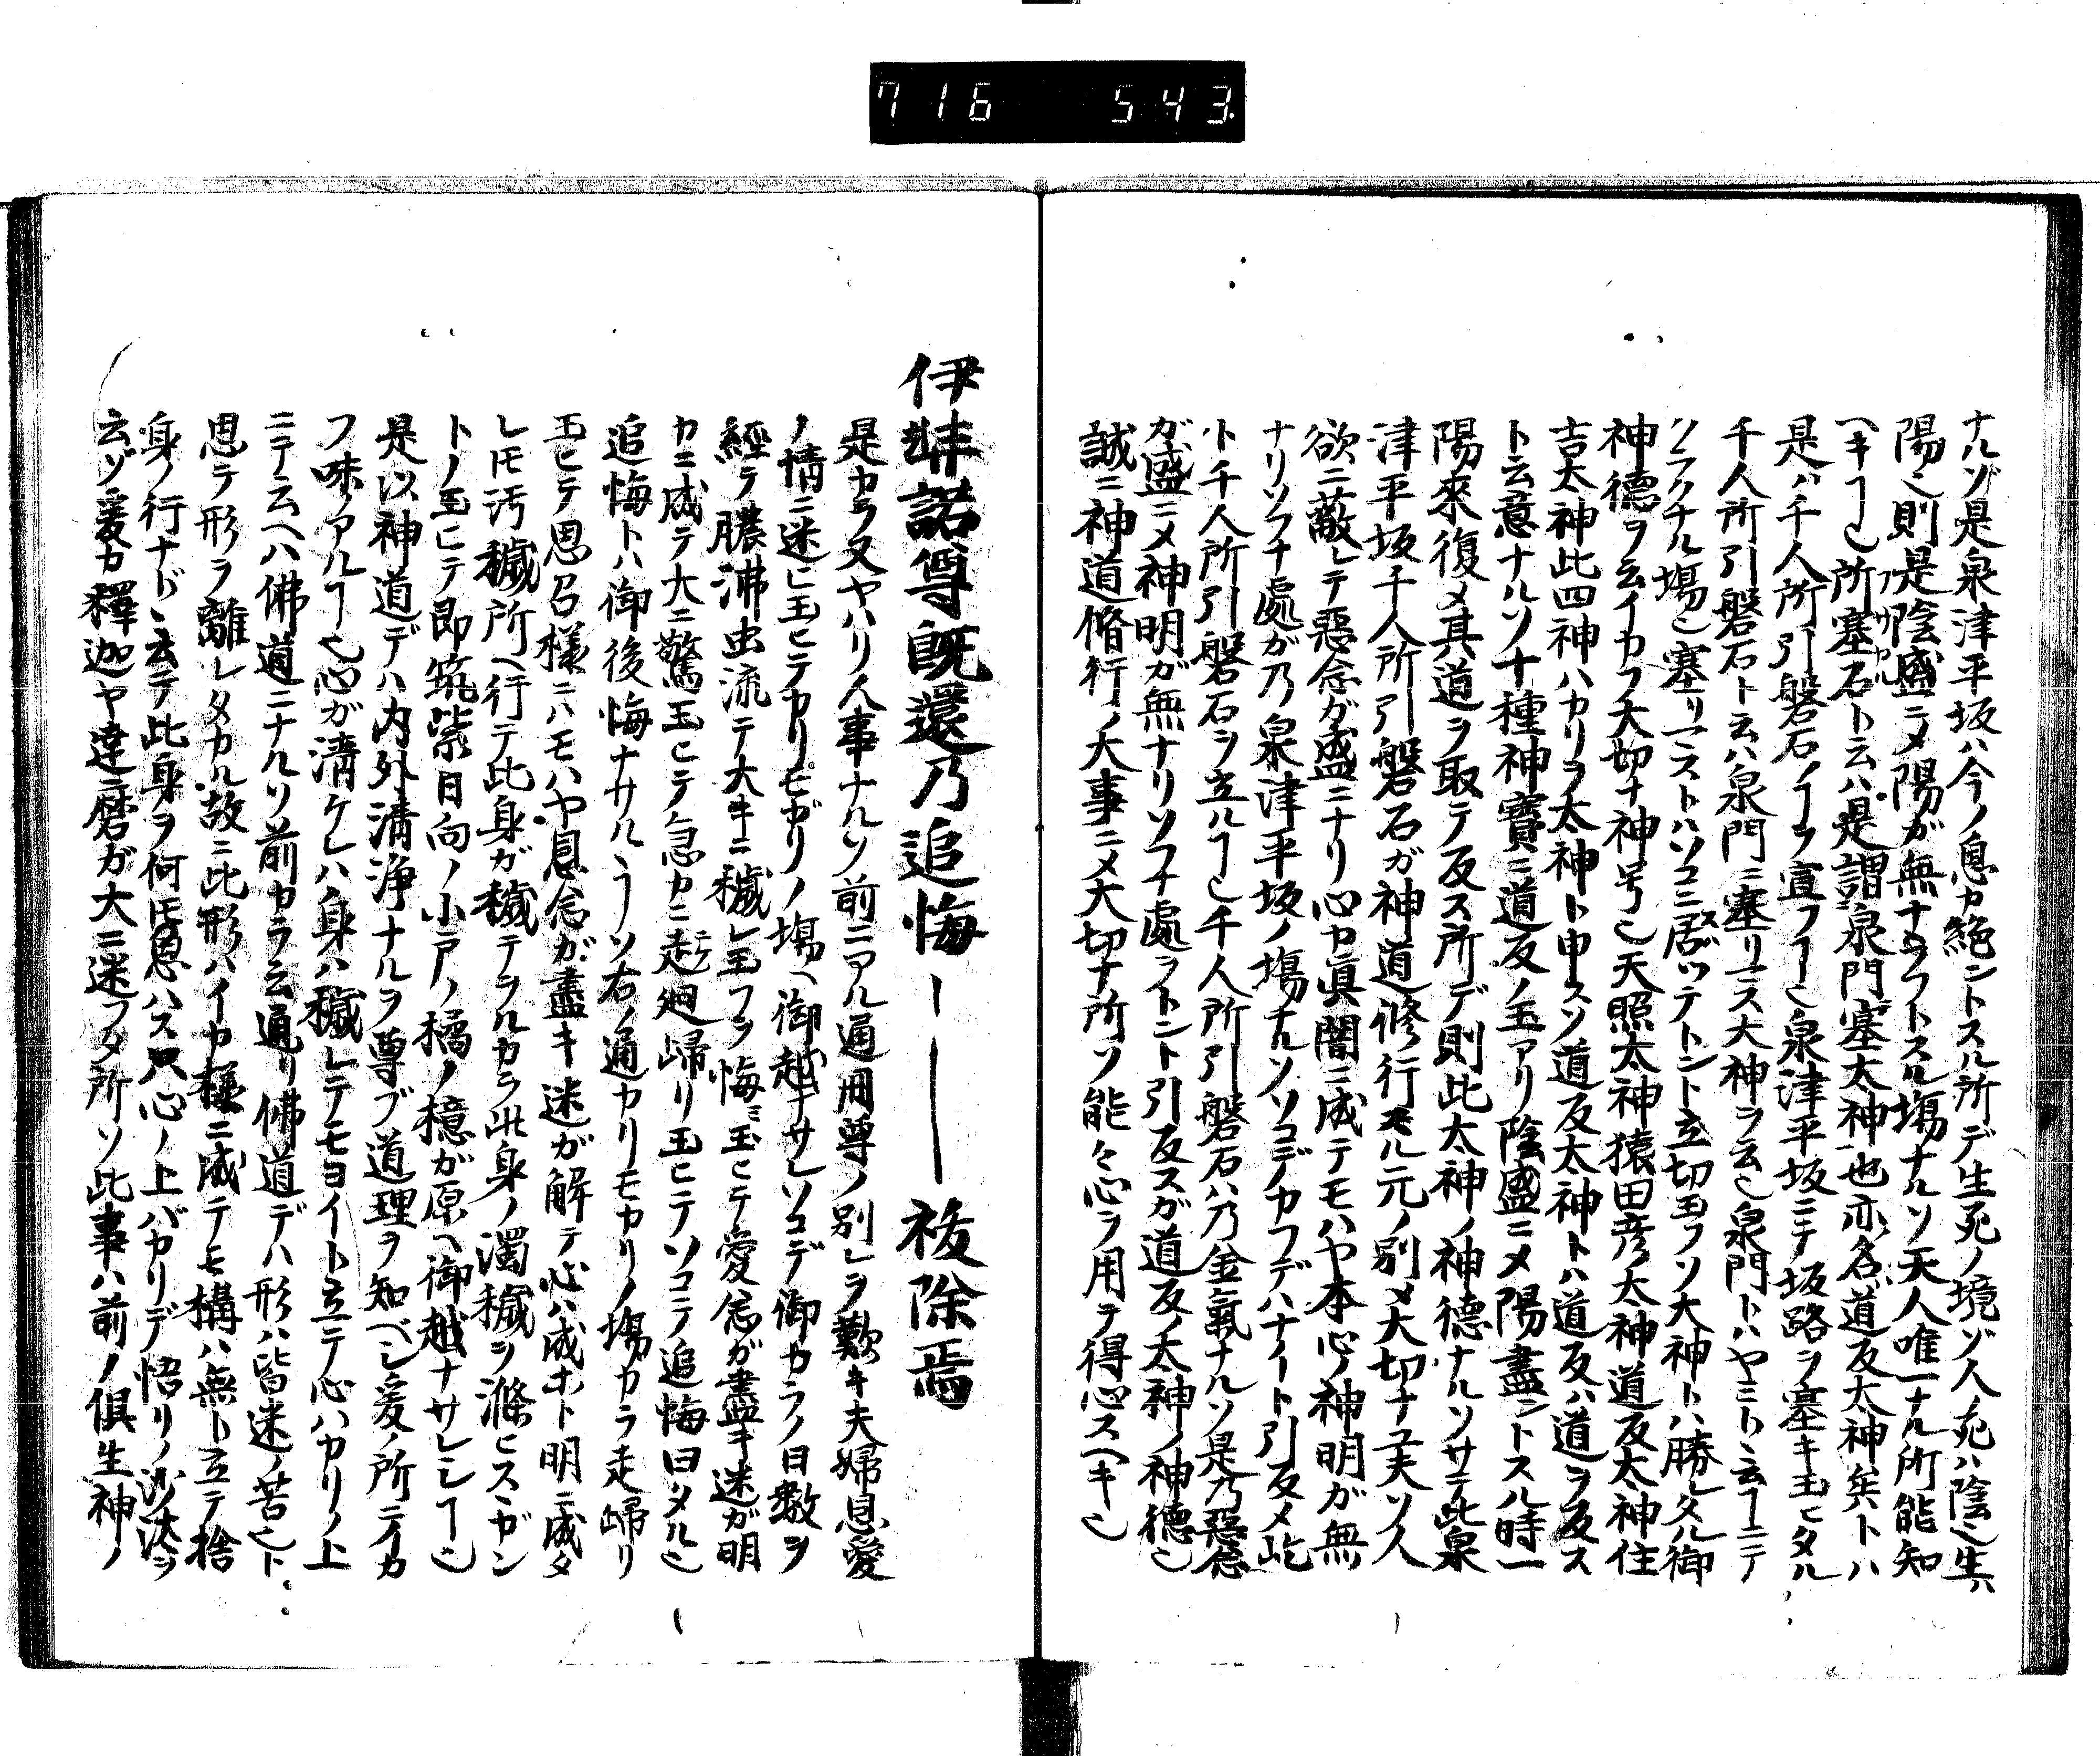 716 543.
ナルソ是泉津平坂ハ今ノ息カ絶ントスル所デ生死ノ境ゾ人ノ死ハ陰也生ハ
陽也則是陰盛ニ〆陽ガ無ナラフトスル塲ナルソ天人唯一ナル所能知
ヘキヿ也所塞石ト云ハ是謂泉門塞太神也亦名道反太神矣トハ
是ハ千人所引磐石ノヿヲ宣フヿ也泉津平坂ニテ坂路ヲ塞キ玉ヒタル
千人所引磐石ト云ハ泉門ニ塞リマス大神ヲ云也泉門トハヤミト云ヿニテ
クラクナル塲也塞リマストハソコニ居ツテトント立切玉フソ大神トハ勝レタル御
神德ヲ云イカフ大切ナ神号也天照太神猿田彦太神道反太神住
吉太神此四神ハカリヲ太神ト申スソ道反太神トハ道反ハ道ヲ反ス
ト云意ナルソ十種神寶ニ道反ノ玉アリ陰盛ニ〆陽盡ントスル時一
陽來復〆其道ヲ取テ反ス所デ則此太神ノ神德ナルソサテ此泉
津平坂千人所引磐石ガ神道修行スル元ノ別〆大切ナヿ夫ソ人
欲ニ蔽レテ惡念ガ盛ニナリ心カ眞闇ニ成テモハヤ本心ノ神明ガ無
ナリソフナ處ガ乃泉津平坂ノ塲ナルソソコデカフデハナイト引反〆屹
ト千人所引磐石ヲ立ルヿ也千人所引磐石ハ乃金氣ナルソ是乃惡念
ガ盛ニ〆神明ガ無ナリソフナ處ヲトント引反スガ道反ノ太神ノ神德也
誠ニ神道脩行ノ大事ニ〆大切ナ所ソ能々心ヲ用テ得心スヘキ也
伊弉諾尊既還乃追悔ー｜祓除焉
是カラ又ヤハリ人事ナルソ前ニアル通冊尊ノ別レヲ歎キ夫婦恩愛
ノ情ニ迷ヒ玉ヒテカリモガリノ塲ヘ御越ナサレソコデ御カラノ日數ヲ
經テ膿沸虫流テ大キニ穢レ玉フヲ悔ミ玉ヒテ愛念ガ盡キ迷ガ明
カニ成テ大ニ驚玉ヒテ急カニ走廻歸リ玉ヒテソコテ追悔曰タル也
追悔トハ御後悔ナサルヽヿソ右ノ通カリモカリノ塲カラ走歸リ
玉ヒテ思召樣ニハモハヤ恩念ガ盡キ迷ガ解テ心ハ成ホト明ニ成タ
レ𪜈汚穢所ヘ行テ此身ガ穢テヲルカラ此身ノ濁穢ヲ滌ヒスヽガン
トノ玉ヒテ即筑紫日向ノ小戸ノ橘ノ檍ガ原ヘ御越ナサレシヿ也
是以神道デハ内外清浄ナルヲ尊ブ道理ヲ知ベシ爰ノ所ニイカ
フ味ノアルヿ也心ガ清ケレハ身ハ穢レテモヨイト立テ心ハカリノ上
ニテ云ヘハ佛道ニナルソ前カラ云通リ佛道デハ形ハ皆迷ノ苦也ト
思テ形ヲ離レタカル故ニ此形ハイカ樣ニ成テモ構ハ無ト立テ捨
身ノ行ナドヽ云テ此身ヲ何𪜈思ハス只心ノ上バカリデ悟リノ沙汰ヲ
云ゾ爰カ釋迦ヤ達磨ガ大ニ迷フタ所ソ此事ハ前ノ俱生神ノ